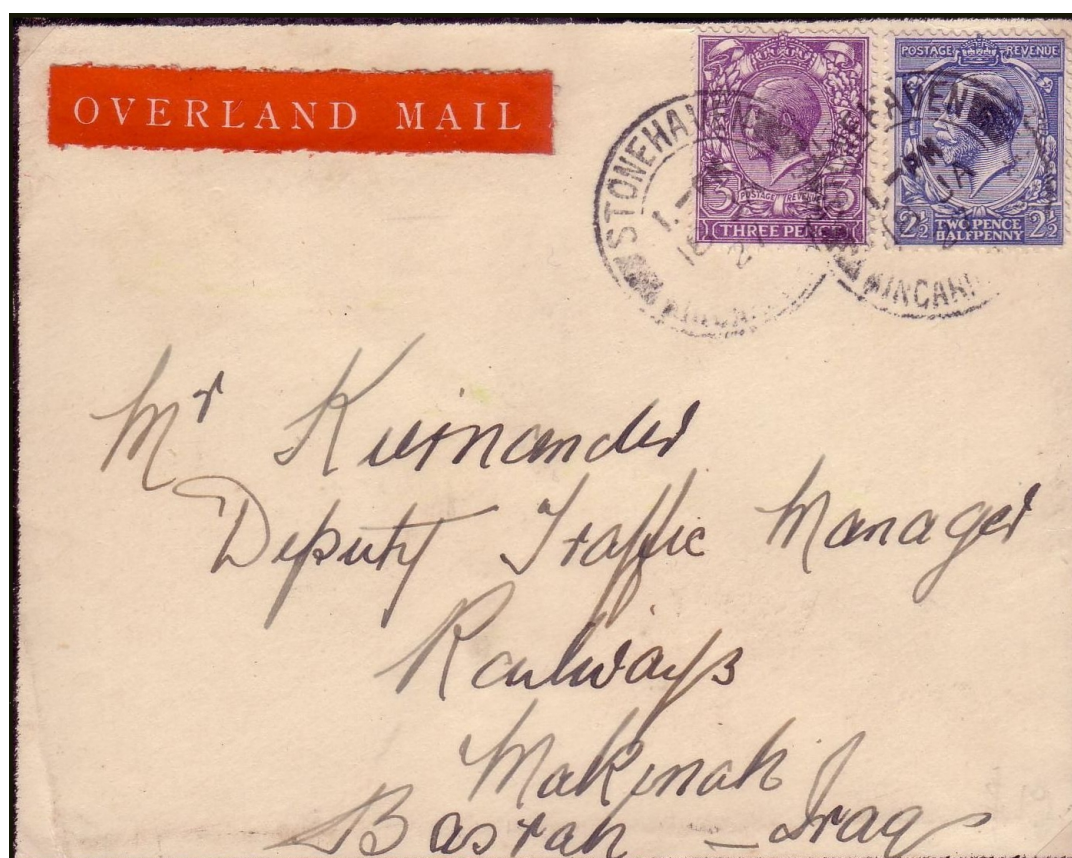 OVERLAND MAIL
3 POSTAGE REVENUE 3
THREE PENCE
POSTAGE REVENUE
2½ TWO PENCE HALFPENNY 2½
STONEHAVEN
1 - PM
STONEHAVEN
1 - PM
JA
KINCAR
Mr Kiernander
Deputy Traffic Manager
Railways
Makinah
Basrah - Iraq